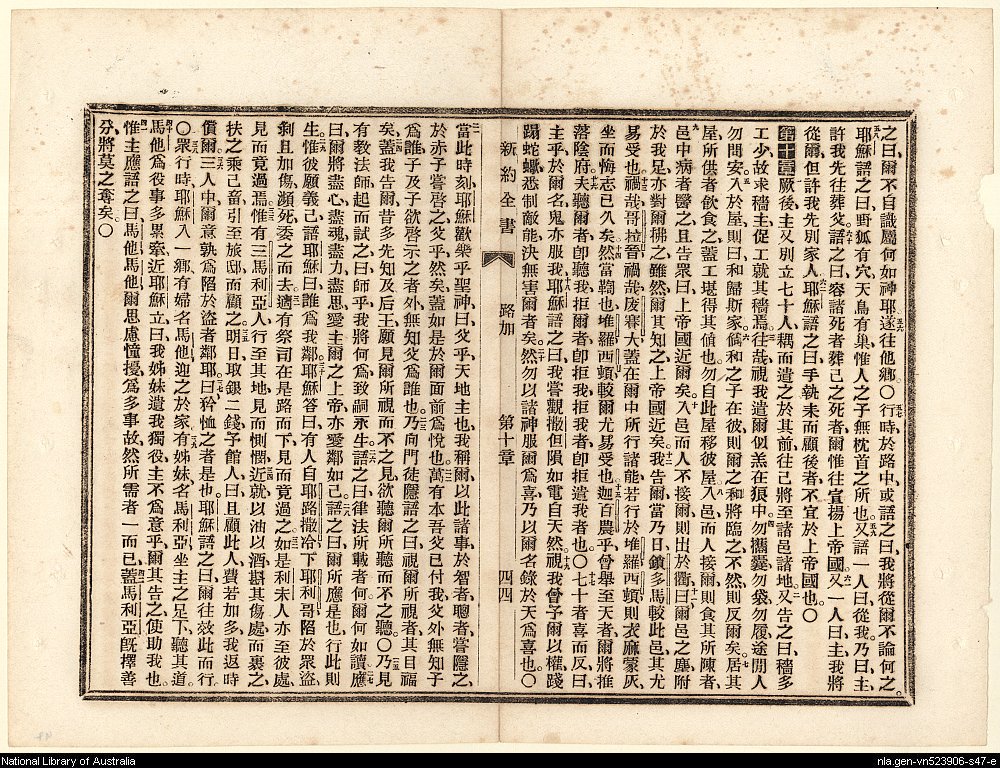 之曰爾不自識屬何如神耶遂往他鄉〇行時於路中或語之曰我將從爾不論何之
耶穌語之曰野狐有穴天鳥有巢惟人之子無枕首之所也又語一人曰從我乃曰主
許我先往葬父語之曰容諸死者葬己之死者爾惟往宣揚上帝國又一人曰主我將
從爾但許我先別家人耶穌語之曰手執耒而顧後者不宜於上帝國也〇
第十章厥後主又別立七十人耦而遣之於其前往己將至諸邑諸地又告之曰穡多
工少故求穡主促工就其穡焉往哉視我遣爾似羔在狼中勿攜囊勿袋勿履途間人
勿問安入於屋則曰和歸斯家倘和之子在彼則爾之和將臨之不然則反爾矣居其
屋所供者飲食之蓋工堪得其値也勿自此屋移彼屋入邑而人接爾則食其所陳者
邑中病者醫之且告衆曰上帝國近爾矣入邑而人不接爾則出於衢曰爾邑之塵附
於我足亦對爾拂之雖然爾其知之上帝國近矣我告爾當乃日鎖多馬較此邑其尤
易受也禍哉哥拉晉禍哉庋賽大蓋在爾中所行諸能若行於堆羅西頓則衣麻蒙灰
坐而悔志已久矣然當鞫也堆羅西頓較爾尤易受也迦百農乎曾舉至天者爾將推
落陰府夫聽爾者卽聽我拒爾者卽拒我拒我者卽拒遣我者也〇七十者喜而反曰
主乎於爾名鬼亦服我耶穌語之曰我嘗觀撒但隕如電自天然視我曾予爾以權踐
蹋蛇蠍悉制敵能決無害爾者矣然勿以諸神服爾爲喜乃以爾名錄於天爲喜也〇
新約全書 路加 第十章 四四
當此時刻耶穌歡樂乎聖神曰父乎天地主也我稱爾以此諸事於智者聰者嘗隱之
於赤子嘗啓之父乎然矣蓋如是於爾面前爲悅也萬有本吾父已付我父外無知子
爲誰子及子欲啓示之者外無知父爲誰也乃向門徒隱語之曰視爾所視者其目福
矣蓋我告爾昔多先知及后王願見爾所視而不之見欲聽爾所聽而不之聽〇乃見
有教法師起而試之曰師乎我將何爲致嗣永生語之曰律法所載者何爾何如讀應
曰爾將盡心盡魂盡力盡思愛主爾之上帝亦愛鄰如己語之曰爾所應是也行此則
生惟彼願義己語耶穌曰誰爲我鄰耶穌答曰有人自耶路撒冷下耶利哥陷於衆盜
剝且加傷瀕死委之而去適有祭司在是路而下見而竟過之如是利未人亦至彼處
見而竟過焉惟有三馬利亞人行至其地見而惻憫近就以油以酒斟其傷處而裹之
扶之乘己畜引至旅邸而顧之明日取銀二錢予館人曰且顧此人費若加多我返時
償爾三人中爾意孰爲陷於盜者鄰耶曰矜恤之者是也耶穌語之曰爾往效此而行
〇衆行時耶穌入一鄉有婦名馬他迎之於家有姊妹名馬利亞坐主之足下聽其道
馬他爲役事多累牽近耶穌立曰我姊妹遺我獨役主不爲意乎爾其告之使助我也
惟主應語之曰馬他馬他爾思慮憧擾爲多事故然所需者一而已蓋馬利亞旣擇善
分將莫之奪矣〇
National Library of Australia
nla.gen-vn523906-s47-e